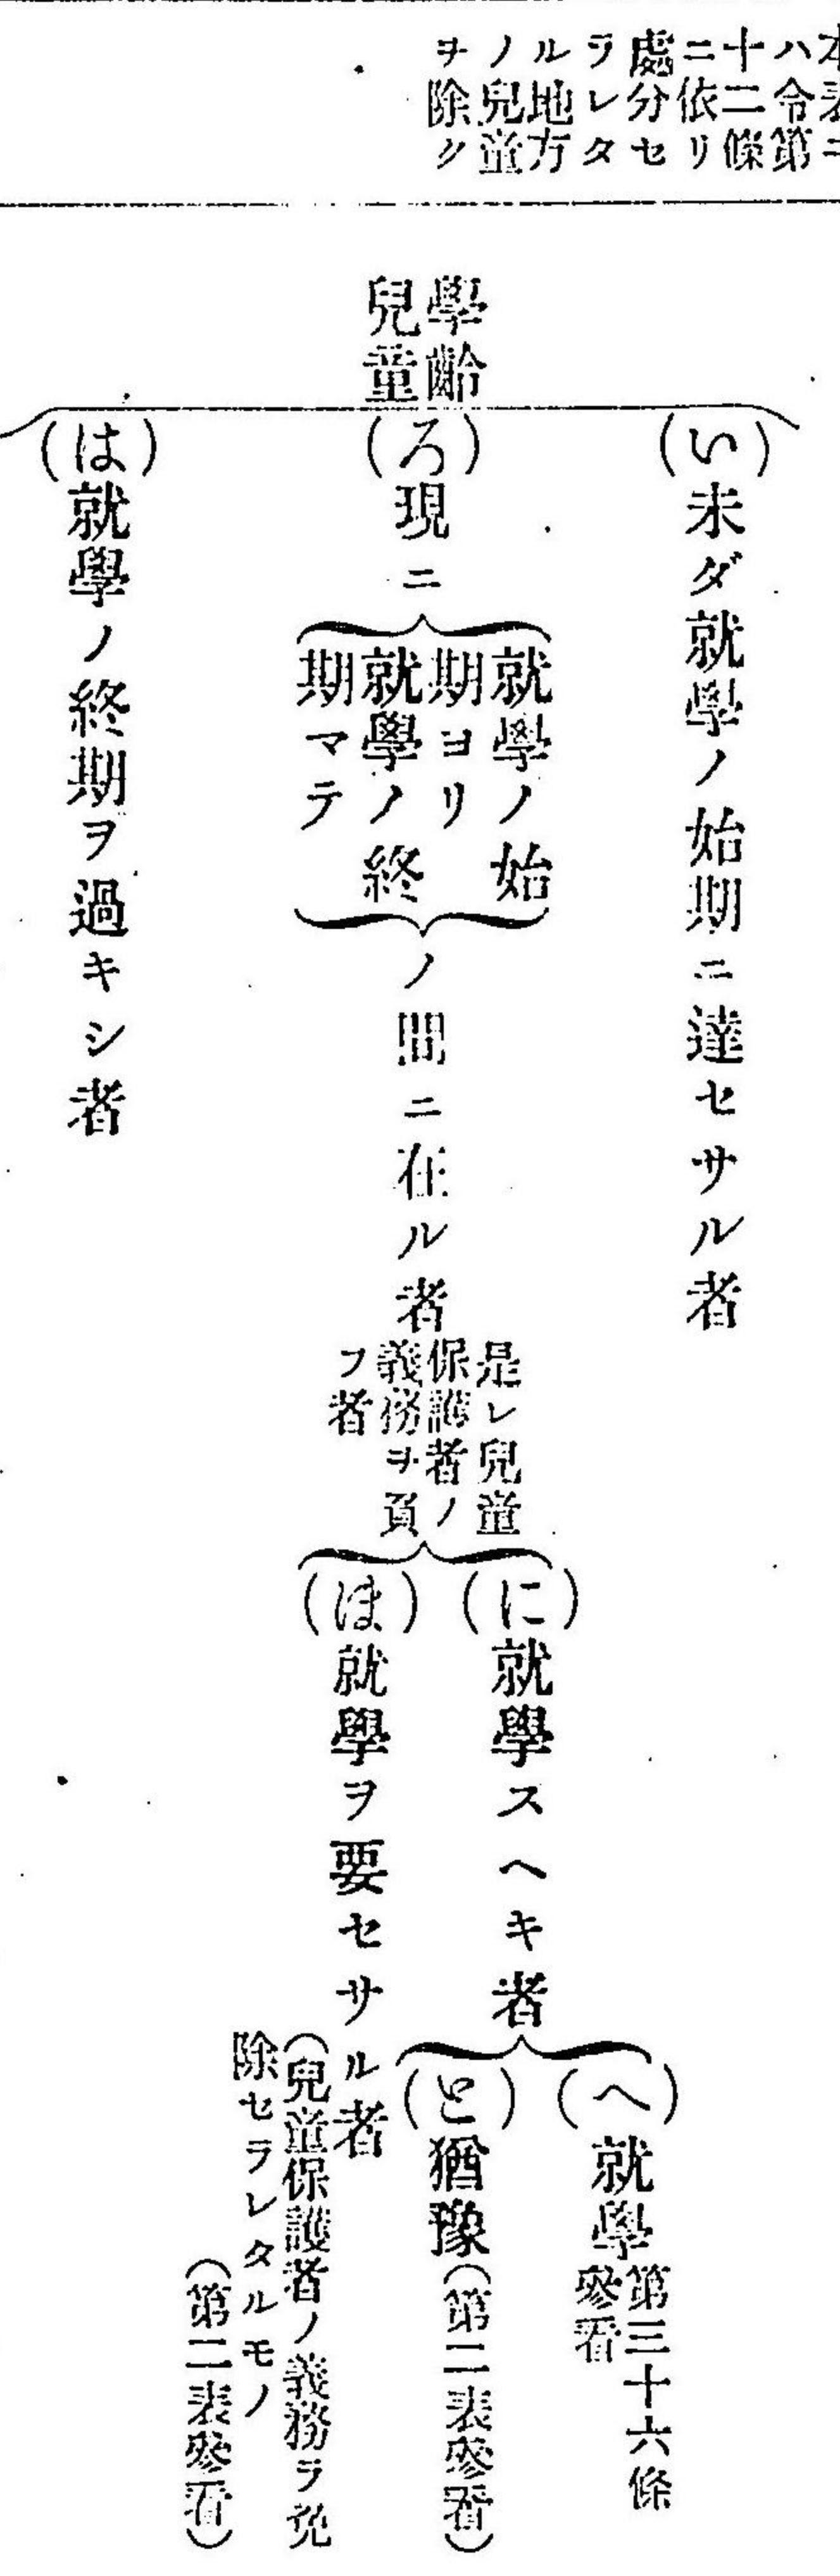 本表ニ
ハ令第
十二條
ニ依リ
處分セ
ラレタ
ル地方
ノ兒童
ヲ除ク
學齡
兒童
(い)未ダ就學ノ始期ニ達セサル者
(ろ)現ニ
就學ノ始
期ヨリ
就學ノ終
期マテ
ノ間ニ在ル者
是レ兒童
保護者ノ
義務ヲ負
フ者
(に)就學スヘキ者
(へ)就學
第三十六條
參看
(と)猶豫(第二表參看)
(ほ)就學ヲ要セサル者
(兒童保護者ノ義務ヲ免
除セラレタルモノ
(第二表參看)
(は)就學ノ終期ヲ過キシ者